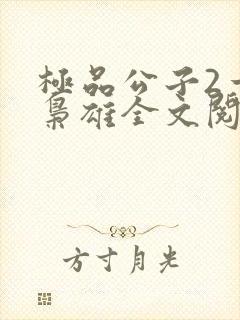 極品公子2
梟雄全文閱
方寸月光